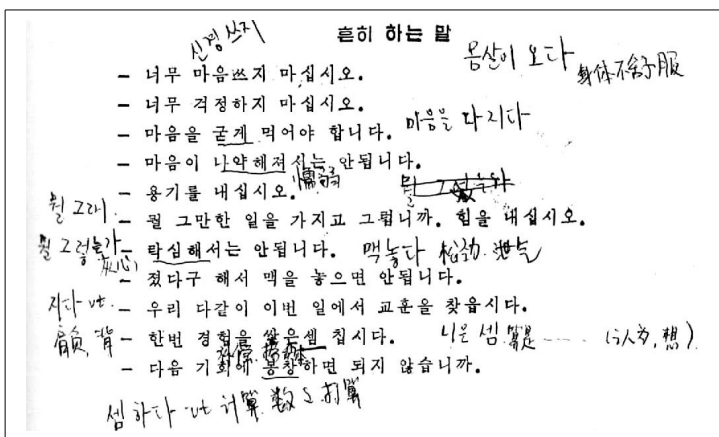 흔히 하는 말
신경 쓰지
몸살이 오다 身体不舒服
- 너무 마음쓰지 마십시오.
- 너무 걱정하지 마십시오.
- 마음을 굳게 먹어야 합니다. 마음을 다지다
- 마음이 나약해져서는 안됩니다.
懦弱
- 용기를 내십시오.
뭘 그래.
- 뭘 그만한 일을 가지고 그럽니까. 힘을 내십시오.
뭘 그렇는가
- 탁심해서는 안됩니다. 맥놓다 松劲 泄气
灰心
- 졌다구 해서 맥을 놓으면 안됩니다.
지다 vt.
- 우리 다같이 이번 일에서 교훈을 찾읍시다.
肩负 背
- 한번 경험을 쌓은셈 칩시다. 니은 셈 算是 …… (认为, 想)
- 다음 기회에 봉창하면 되지 않습니까.
셈하다 vt 计算 数 打算